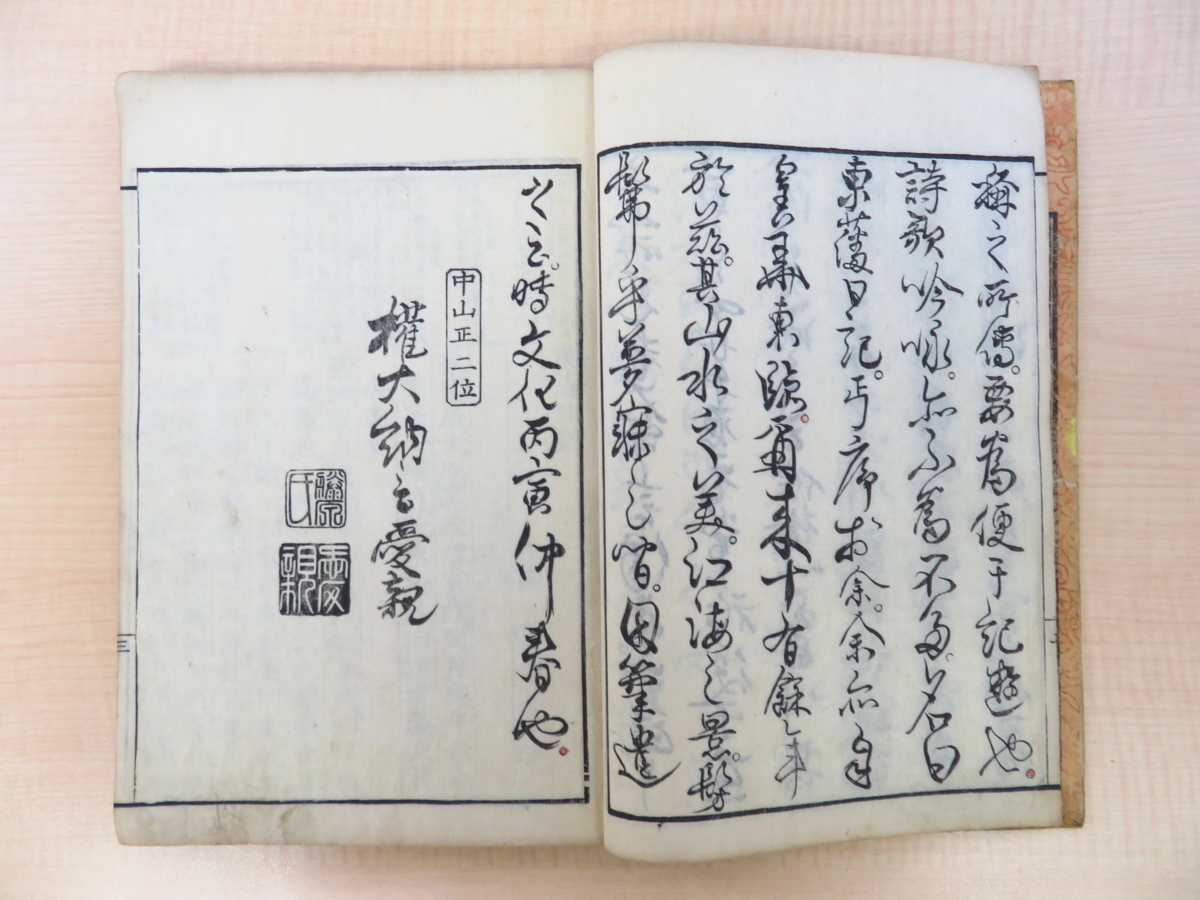 之所傳。要為便于記遊也。
詩歌吟咏。亦不為不多。名曰
東藩日記。丐序於余。余亦奉
皇華東臨。爾來十有餘年
於茲。其山水之美。江海之景。髣
髴乎夢寐之間。因筆遣
之云。時文化丙寅仲春也。
中山正二位
權大納言愛親
愛親